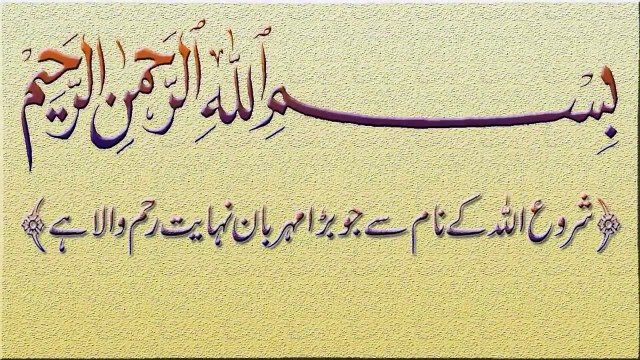 بِسْمِ اللّٰهِ الرَّحْمٰنِ الرَّحِيْمِ
﴿شروع اللہ کے نام سے جو بڑا مہربان نہایت رحم والا ہے﴾